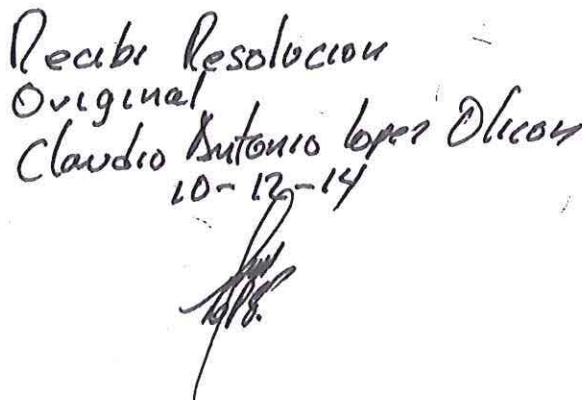 Recibi Resolucion
Original
Claudio Antonio Lopez Olicon
10-12-14